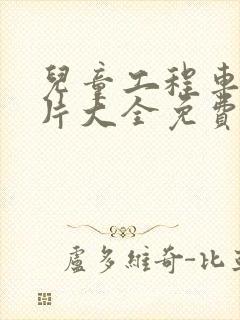 兒童工程車
片大全免費
盧多維奇-比亞